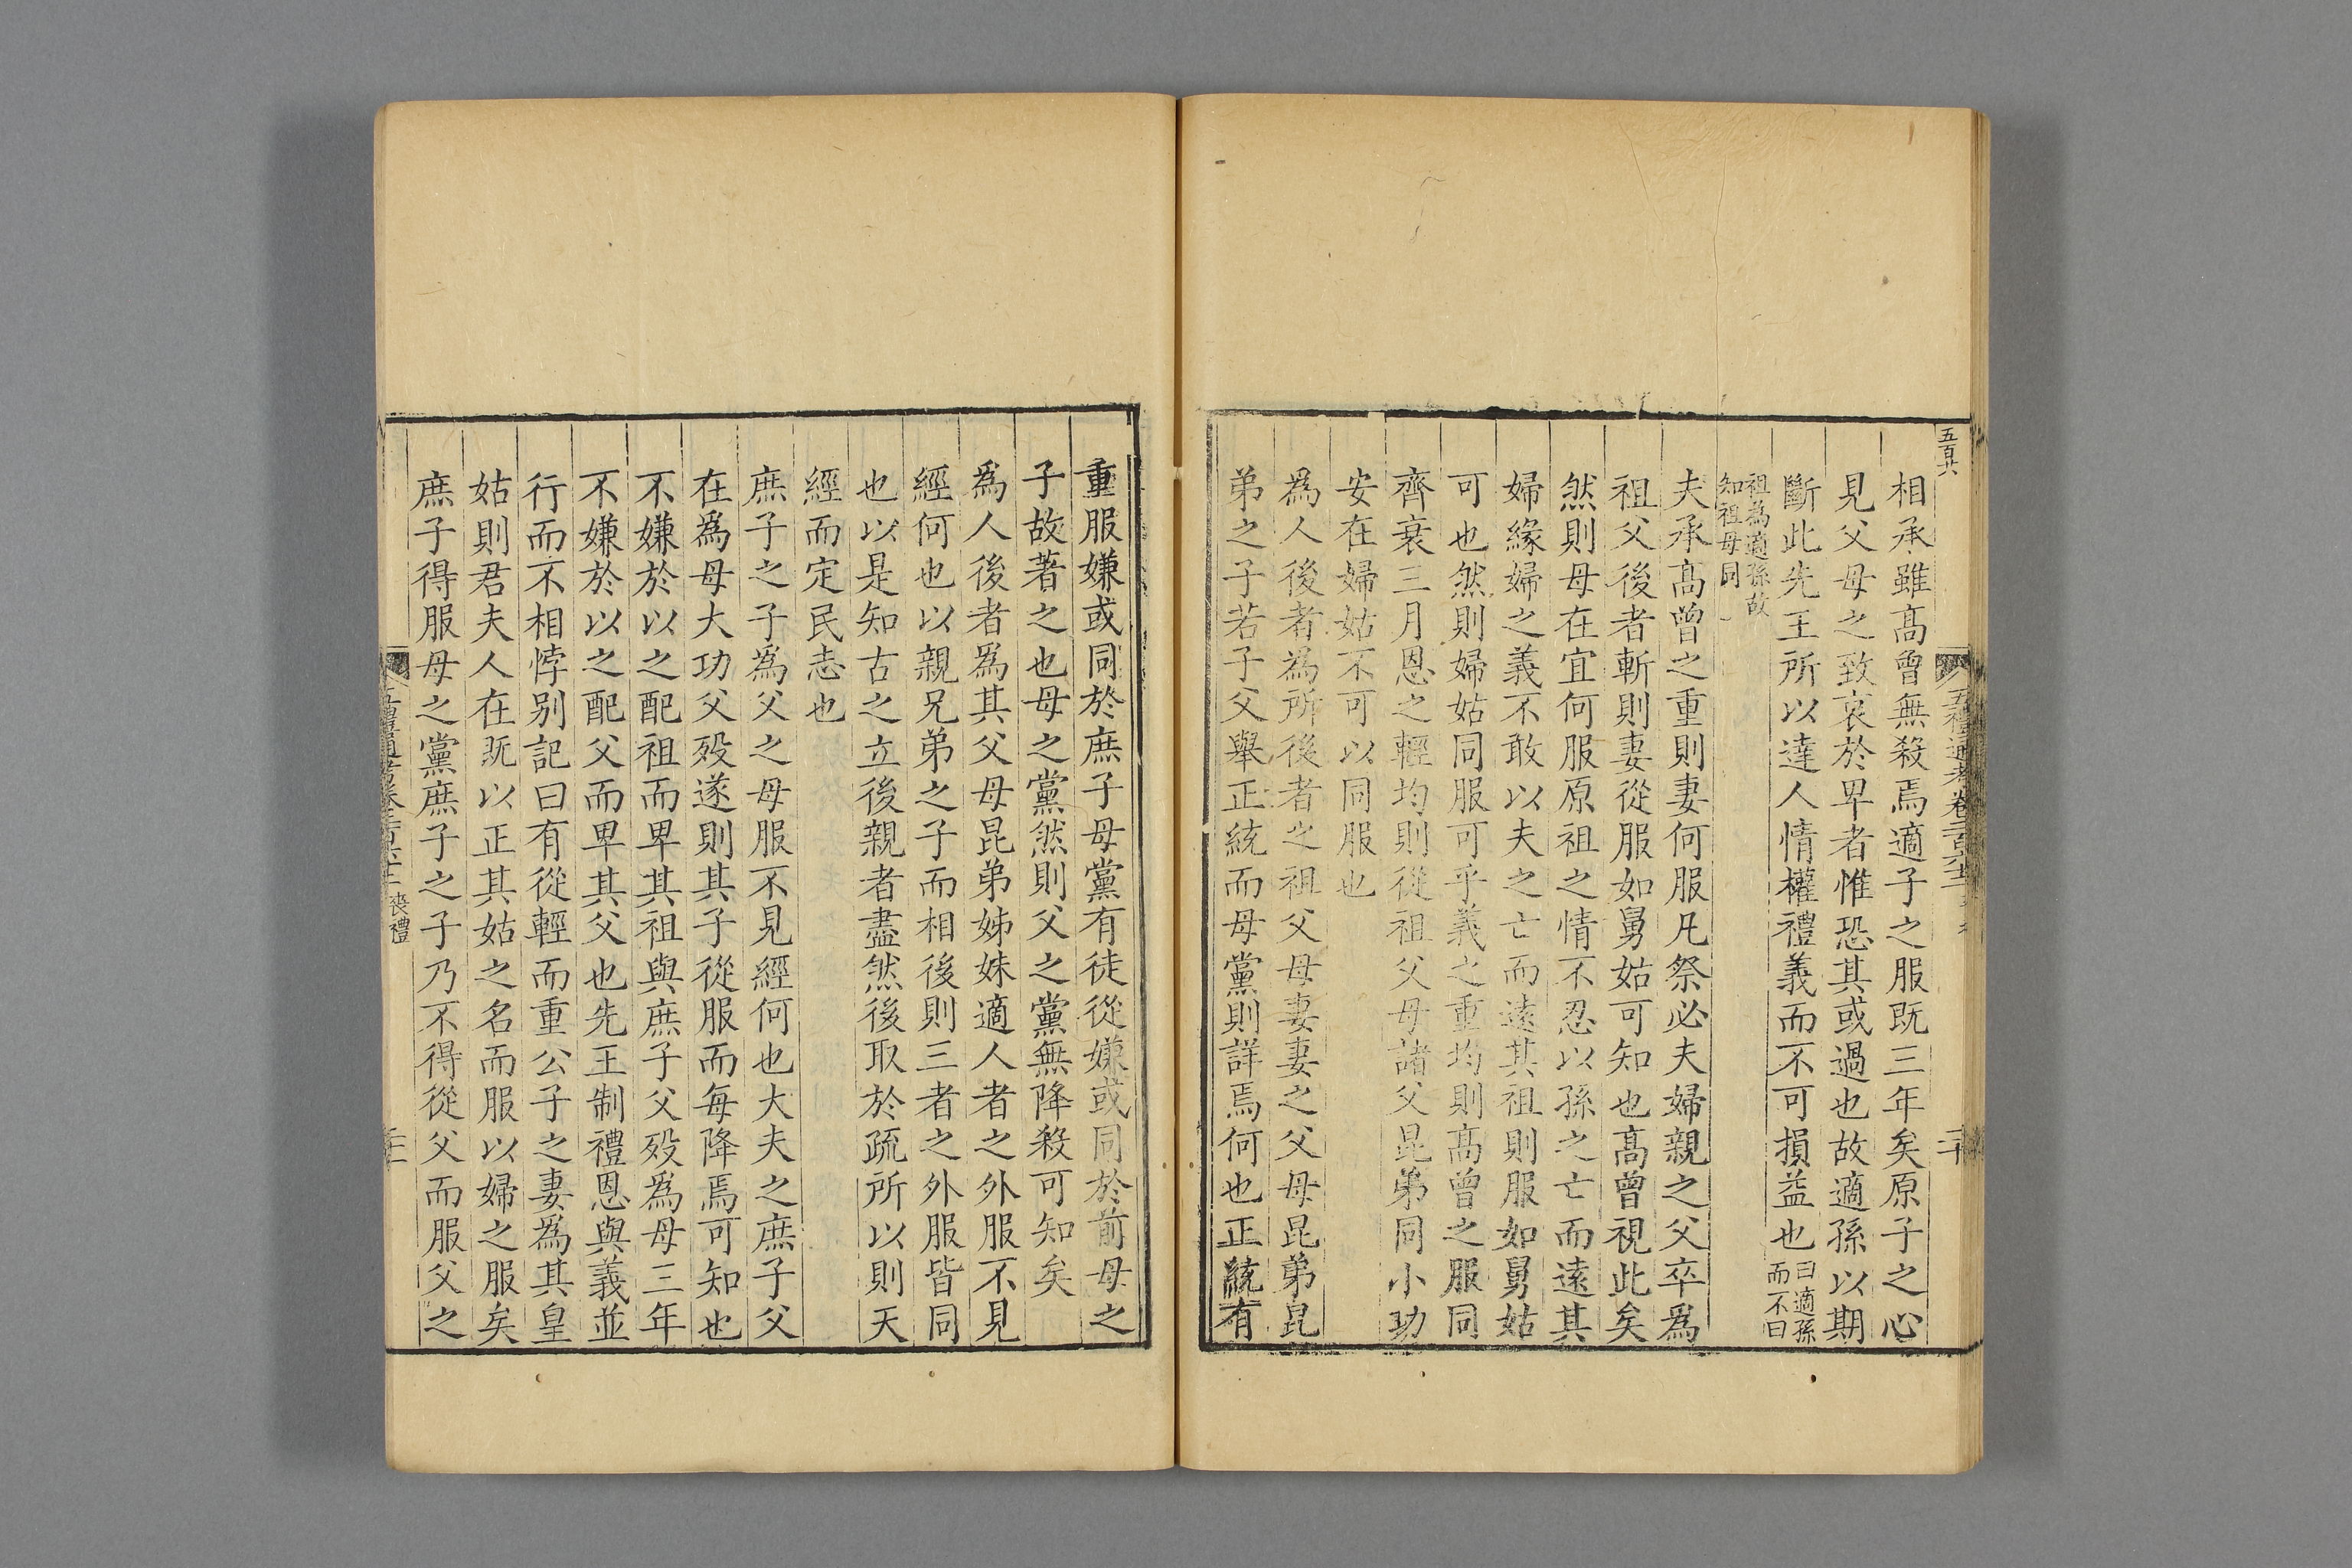 五百六
五禮通考卷二百六十
二十
相承雖髙曾無殺焉適子之服既三年矣原子之心
見父母之致哀於卑者惟恐其或過也故適孫以期
斷此先王所以達人情權禮義而不可損益也曰適孫
而不曰
祖為適孫故
知祖母同
夫承髙曾之重則妻何服凡祭必夫婦親之父卒爲
祖父後者斬則妻從服如舅姑可知也髙曾視此矣
然則母在宜何服原祖之情不忍以孫之亡而遠其
婦緣婦之義不敢以夫之亡而遠其祖則服如舅姑
可也然則婦姑同服可乎義之重均則髙曾之服同
齊衰三月恩之輕均則從祖父母諸父昆弟同小功
安在婦姑不可以同服也
爲人後者為所後者之祖父母妻妻之父母昆弟昆
弟之子若子父舉正統而母黨則詳焉何也正統有
重服嫌或同於庶子母黨有徒從嫌或同於前母之
子故著之也母之黨然則父之黨無降殺可知矣
爲人後者爲其父母昆弟姊妹適人者之外服不見
經何也以親兄弟之子而相後則三者之外服皆同
也以是知古之立後親者盡然後取於疏所以則天
經而定民志也
庶子之子爲父之母服不見經何也大夫之庶子父
在爲母大功父歿遂則其子從服而每降焉可知也
不嫌於以之配祖而卑其祖與庶子父歿為母三年
不嫌於以之配父而卑其父也先王制禮恩與義並
行而不相悖别記曰有從輕而重公子之妻爲其皇
姑則君夫人在既以正其姑之名而服以婦之服矣
庶子得服母之黨庶子之子乃不得從父而服父之
喪禮